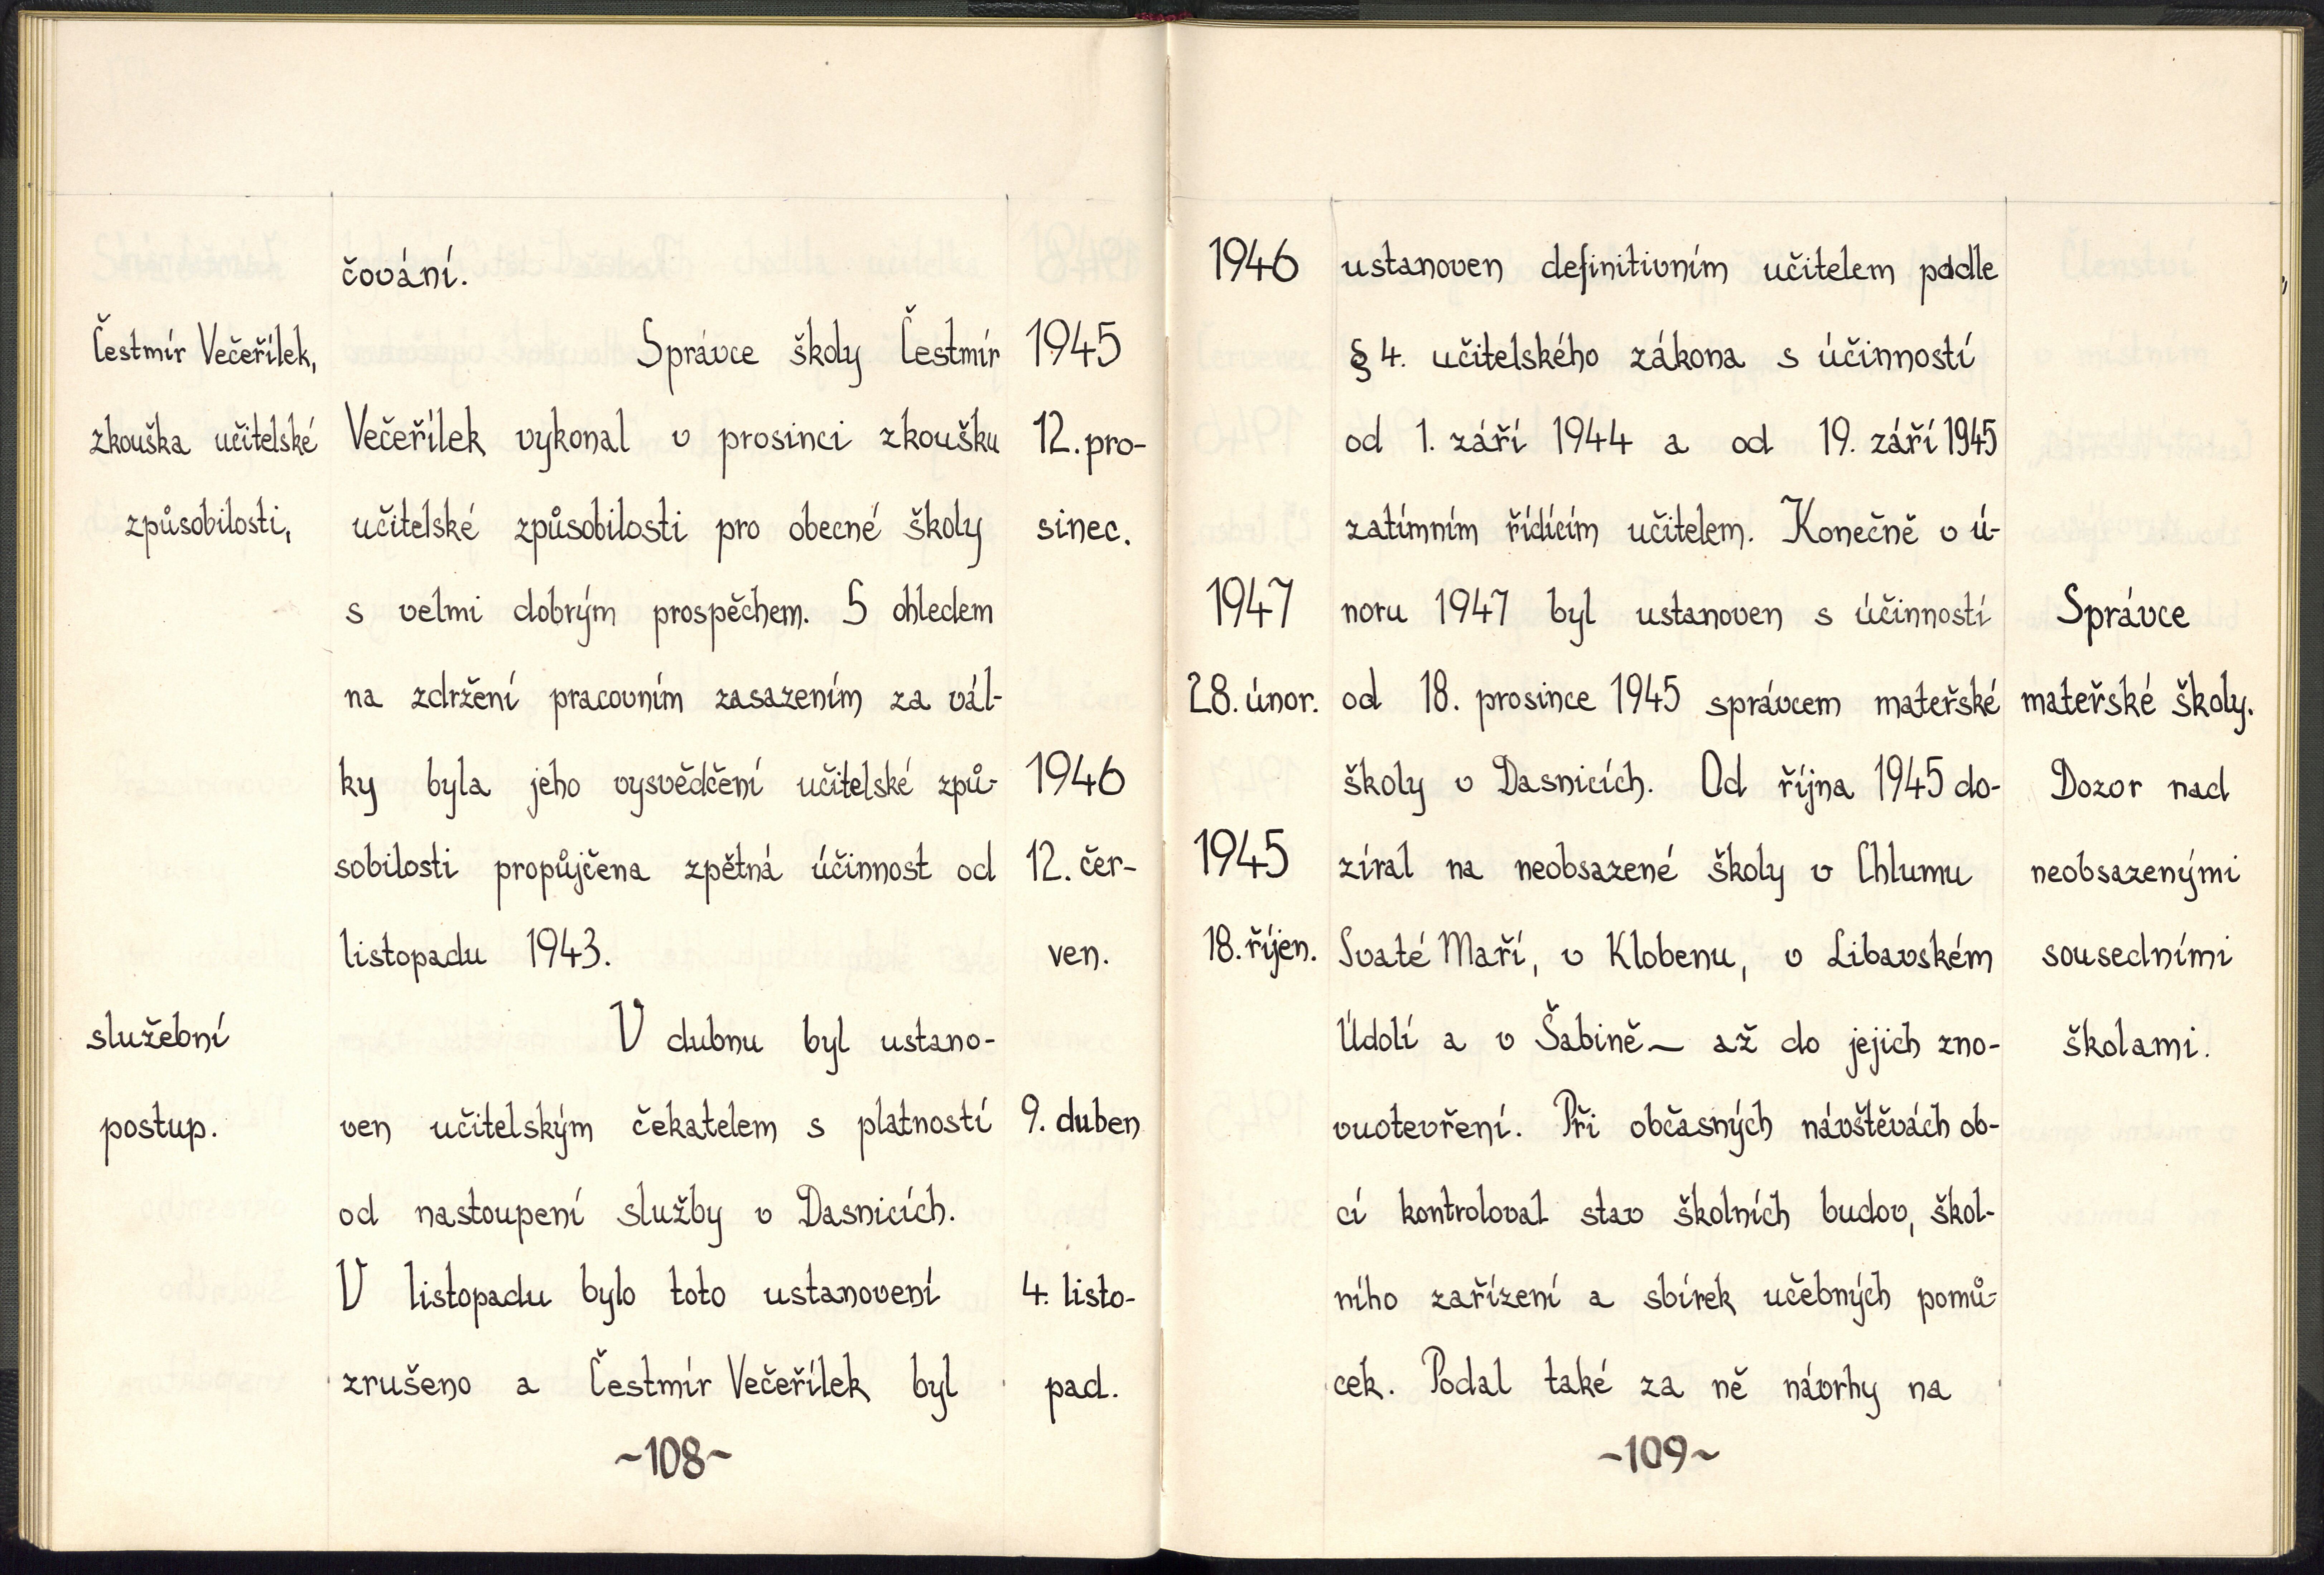 čování.
Čestmír Večeřílek,
Správce školy Čestmír
1945
zkouška učitelské
Večeřílek vykonal v prosinci zkoušku
12. pro-
způsobilosti,
učitelské způsobilosti pro obecné školy
sinec.
s velmi dobrým prospěchem. S ohledem
na zdržení pracovním zasazením za vál-
ky byla jeho vysvědčení učitelské způ-
1946
sobilosti propůjčena zpětná účinnost od
12. čer-
listopadu 1943.
ven.
služební
V dubnu byl ustano-
postup.
ven učitelským čekatelem s platností
9. duben
od nastoupení služby v Dasnicích.
V listopadu bylo toto ustanovení
4. listo-
zrušeno a Čestmír Večeřílek byl
pad.
~108~
1946
ustanoven definitivním učitelem podle
§ 4. učitelského zákona s účinností
od 1. září 1944 a od 19. září 1945
zatímním řídícím učitelem. Konečně v ú-
1947
noru 1947 byl ustanoven s účinností
Správce
28. únor.
od 18. prosince 1945 správcem mateřské
mateřské školy.
školy v Dasnicích. Od října 1945 do-
Dozor nad
1945
zíral na neobsazené školy v Chlumu
neobsazenými
18. říjen.
Svaté Maří, v Klobenu, v Libavském
sousedními
Údolí a v Šabině — až do jejich zno-
školami.
vuotevření. Při občasných návštěvách ob-
cí kontroloval stav školních budov, škol-
ního zařízení a sbírek učebných pomů-
cek. Podal také za ně návrhy na
~109~